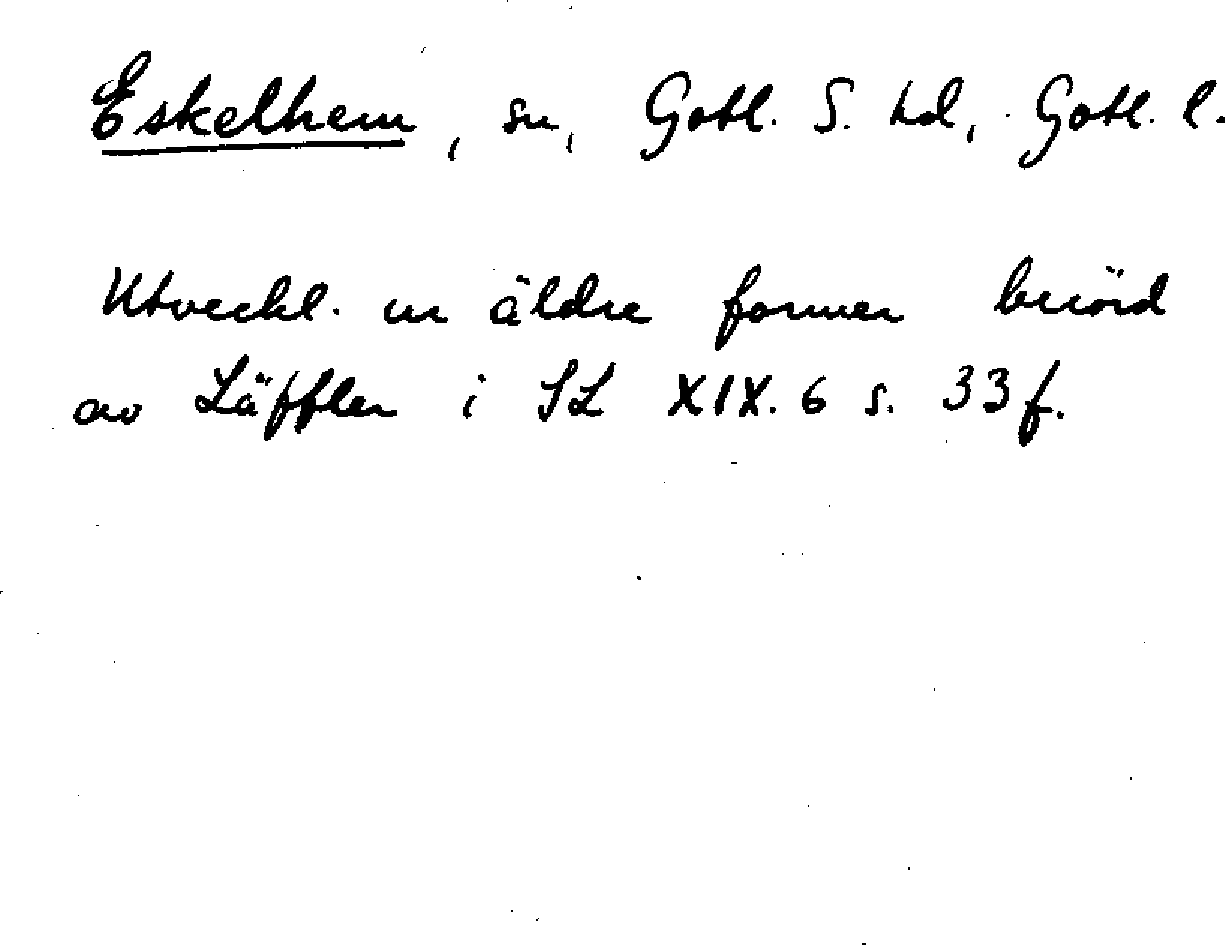 Eskelhem, sn, Gotl. S. hd, Gotl. l.
Utveckl. ur äldre former berörd
av Läffler i SL XIX. 6 s. 33 f.